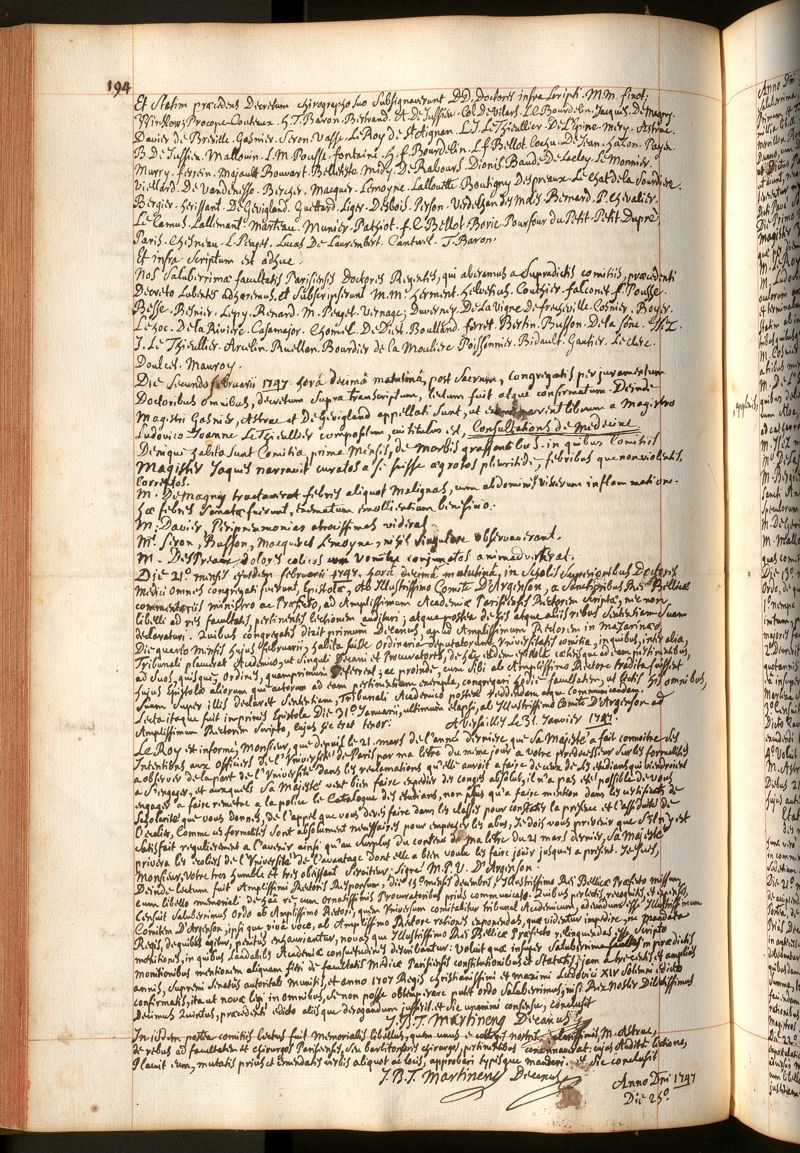 194
Et Statim præcedens Decretum chirographo suo Subsignaverunt DD. Doctores infra Scripti. M.M. finot;
Winslow; Procope-Couteux. H.T. Baron. Bertrand. Ant. De Jussieu. Col de Vilars. L.C. Bourdelin. Jaques. De Magny.
Davier de Breville. Gasnier. Seron. Vasse. Le Roy de St Aignan. L.J. Le Thieullier. De L'Epine. Mery. Astruc.
B. De Jussieu. Mallouin. L.M. Pousse. fontaine. H.f. Bourdelin. L.f. Bellot. Cochu. De Jean. hazon. Payen.
Murry. ferrein. Majault. Bouvart. Belleteste. Midy. De Rabours. Dionis. Baude De Lacloy. Le Monnier.
Viellard. De Vandenesse. Bercher. Macquer. Lemoyne. Lallouette. Boutigny Despreaux. Le Chat de la Sourdiere.
Bergier. herissant. De Gevigland. Guettard. Liger. Desbois. Person. Verdelhan des Moles. Bernard. P. Chevalier.
Le Camus. Lallemant. Marteau. Munier. Pathiot. f.C. Bellot. Borie. Pourfour du Petit. Petit. Dupré.
Paris. Chesneau. L. Peaget. Lucas De Laurembert. Cantwel. T. Baron.
Et infra Scriptum est adhuc.
Nos Saluberrimæ facultatis Parisiensis Doctores Regentes, qui aberamus a Supradictis comitiis, præcedenti
Decreto Lubentes adhæremus. Et Subscripserunt M.M. herment. Helvetius. Couthier. falconet. f. Pousse.
Besse. Besnier. Lepy. Renard. M. Peaget. Vernage; Duverney. De La Vigne de freshville. Cosnier. Boyer.
Lehoc. De la Riviere. Casamajor. Chomel. De Diest. Boulland. ferret. Bertin. Busson. De la Sône.
J. Le Thieullier. Arcelin. Ruellan. Bourdier de la Mouliere. Poissonnier. Bidault. Gautier. Leclerc.
Doulcet. Mauroy.
Die Secundo februarii 1747. horâ decimâ matutinâ, post Sacrum, congregatis per juramentum
Doctoribus omnibus, decretum Supra transcriptum, lectum fuit atque confirmatum. Deinde
Magistri Gasnier, Astruc et De Gevigland appellati Sunt, ut examinarent librum a Magistro
Ludovico Joanne Le Thieullier compositum, cui titulus est, Consultations de Medecine
Denique habita Sunt Comitia prima Mensis, de Morbis grassantibus. in quibus Comitiis
Magister Jaques narravit curatos a se fuisse ægrotos pleuritide, febribus que non violentis,
Correptos.
M. De Magny tractaverat febres aliquot Malignas, cum abdominis viscerum inflammatione.
hæ febres Sanatæ fuerunt, enematum emollientium beneficio.
M. Davier, Peripneumonias atrocissimas viderat.
Mi Seron, Busson, Macquer et Lemoyne, nihil Singulare observaverant.
M. Despreaux dolores colicos cum vomitu conjunctos animadverterat.
Die 21o mensis ejusdem februarii 1747. horâ decimâ matutinâ, in Scholis Superioribus Doctores
Medici omnes congregati fuerunt, Epistolæ, Ab Illustrissimo Comite D'Argenson, a Sanctioribus Rei Bellicæ
commentariis ministro ac Præfecto, ad Amplissimum Academiæ Parisiensis Rectorem Scriptæ, nec non
libelli ad res facultatis pertinentis lectionem audituri; atque postea de his atque aliis rebus Sententiam Suam
declaraturi. Quibus congregatis dixit primum Decanus, apud Amplissimum Rectorem in Mazarinæo
Die quarto Mensis hujus februarii, habita fuisse Ordinaria Deputatorum Universitatis comitia, in quibus, inter alia,
Tribunali placuerat Academico, ut Singuli Decani et Procuratores, de hâc eâdem Epistolâ cæterisque ad eam pertinentibus,
ad Suos, quisque, Ordines, quamprimum referrent; ac proinde, cum Sibi ab Amplissimo Rectore tradita fuissent
hujus Epistolæ aliorum que actorum ad eam pertinentium exempla, congregari hodie facultatem, ut lectis his omnibus,
Suam Super illis declaret Sententiam, Tribunali Academico postea reddendam atque communicandam.
Lecta itaque fuit imprimis Epistola Die 31o Januarii, ultimum elapsi, ab Illustrissimo Comite D'Argenson ad
Amplissimum Rectorem Scripta, cujus sic erat tenor. A Versailles Le 31. Janvier 1747.
Le Roy est informé, Monsieur, que depuis le 21. mars de l'année derniere que Sa Majesté a fait connoitre Ses
Intentions aux officiers de L'Université de Paris par ma lettre du même jour a votre prédecesseur Sur les formalités
a observer de la part de l'Université dans les reclamations qu'elle auroit a faire de ceux de Ses étudians qui viendroient
a S'engager, et auxquels Sa Majesté veut bien faire expedier des congés absolus, il n'a pas été possible de vous
engager a faire remettre a la police le Catalogue des étudians, non plus qu'a faire mention dans les certificats de
Scholarité que vous donnés, de l'appel que vous devés faire dans les classes pour constater la présence et l'assiduité de
l'Ecolier, Comme ces formalités Sont absolument necessaires pour empecher les abus, Je dois vous prevenir que S'il n'y est
Satisfait regulierement a l'avenir ainsi qu'au Surplus du contenu de ma lettre du 21 mars dernier, Sa Majesté
privera les ecoliers de l'Université De l'avantage dont elle a bien voulu les faire jouir jusques a présent. Je Suis,
Monsieur, Votre tres humble et tres obeissant Serviteur. Signé M.P.V. D'Argenson.
Deinde lectum fuit Amplissimi Rectoris Responsum, die 15o mensis decembris, Illustrissimo Rei Bellicæ Præfecto missum,
cum libello memoriali de hâc re cum ornatissimis Procuratoribus prius communicato. Quibus perlectis, recognitis, et expensis,
Censuit Saluberrimus Ordo ab Amplissimo Rectore, quem Universum comitabitur Tribunal Academicum, adeundum esse Illustrissimum
Comitem D'Argenson, ipsi que vivâ voce, ab Amplissimo Rectore rationes exponendas, quæ videntur impedire, ne mandata
Regis, de quibus agitur, penitus exhauriantur, novas que Illustrissimo Rei Bellicæ Præfecto relinquendas esse Scripto
monitiones, in quibus Laudabiles Academiæ consuetudines describantur. Voluit que insuper Saluberrima facultas in prædictis
monitionibus mentionem aliquam fieri de facultatis Medicæ Parisiensis constitutionibus et Statutis, jam a trecentis et amplius
annis, Supremi Senatûs autoritate Munitis, et anno 1707 Regis Christianissimi et maximi Ludovici XIV Solemni edicto
confirmatis, ita ut novæ legi in omnibus, Se non posse obtemperare putet ordo Saluberrimus, nisi Rex Noster Dilectissimus
Decimus Quintus, præcedenti edicto aliisque derogandum jusserit. et Sic unanimi consensu, conclusit
J.B.T. Martinenq Decanus.
In iisdem postea comitiis lectus fuit Memorialis libellus, quem unus e collegis nostris clarissimis, M. Astruc,
de rebus ad facultatem et chirurgos Parisienses, Seu barbitonsores chirurgos, pertinentibus concinnaverat: cujus Auditâ lectione,
Placuit eum, mutatis prius et emendatis verbis aliquot ac locis, approbari typisque mandari. Et Sic conclusit
J.B.T. Martinenq Decanus
Anno Dñi 1747
Die 25o